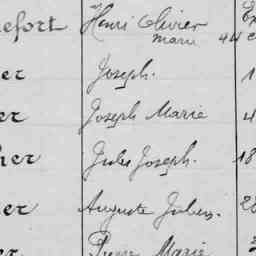 efort Henri Olivier
marie 44
er Joseph. 1
er Joseph Marie 4
her Jules Joseph. 18
er Auguste Julien. 28
er Pierre Marie